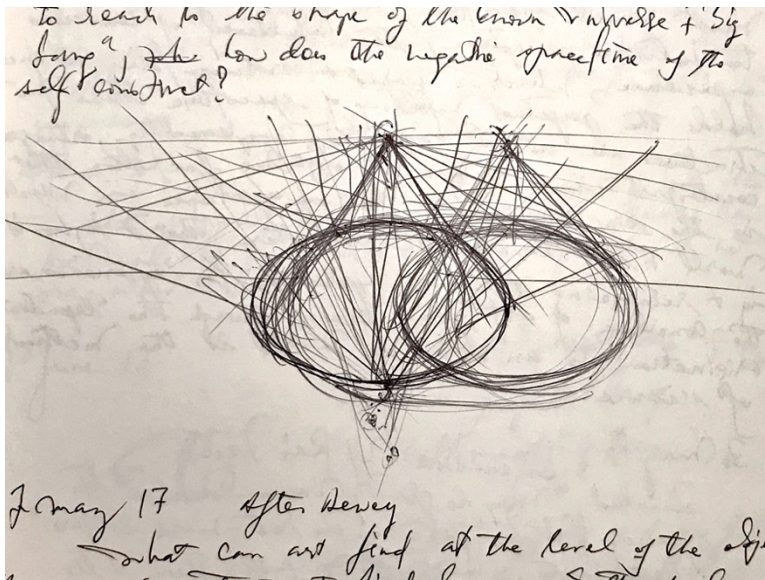 to reach to the shape of the known universe + Big
Bang", how does the negative spacetime of the
self construct?
2 may 17 After Dewey
what can art find at the level of the